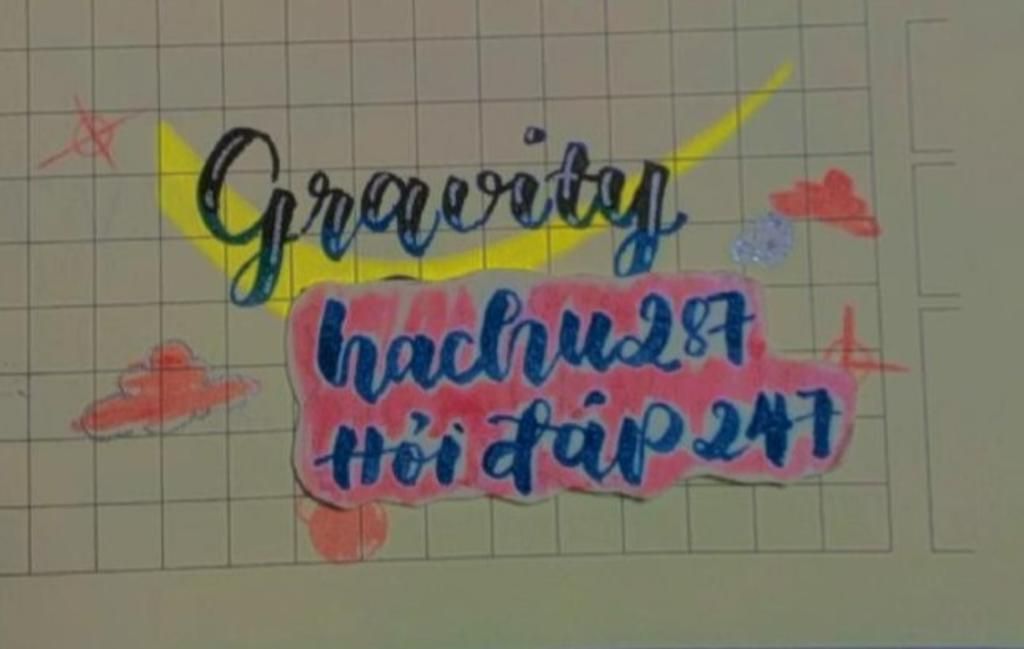 Gravity
hachu287
Hỏi đáp 247